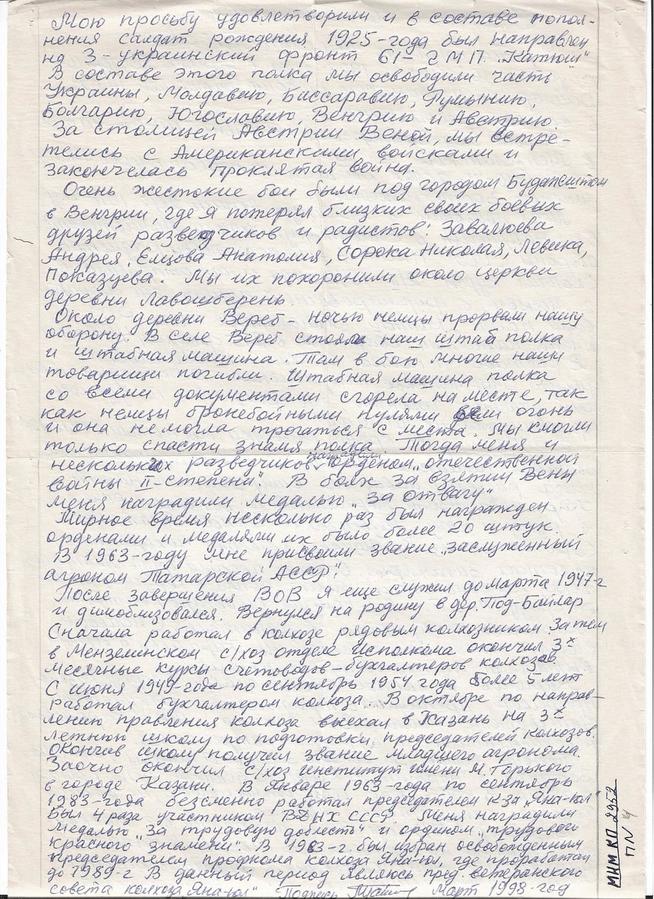 Мою просьбу удовлетворили и в составе попол-
нения солдат рождения 1925-года был направлен
на 3-украинский фронт 61й г М П. „Катюш"
В составе этого полка мы освободили часть
Украины, Молдавию, Бассаравию, Румынию,
Болгарию, Югославию, Венгрию и Австрию
За столицей Австрии Веной, мы встре-
телись с Американскими войсками и
закончелась проклятая война.
Очень жестокие бои были под городом Будапештом
в Венгрии, где я потерял близких своих боевых
друзей разведчиков и радистов: Завалюева
Андрея, Емцова Анатолия, Сорока Николая, Левина,
Показцева. Мы их похоронили около церкви
деревни Лавошберень.
Около деревни Вереб - ночью немцы прорвали нашу
оборону. В селе Вереб стояла наш штаб полка
и штабная машина. Там в бою многие наши
товарищи погибли. Штабная машина полка
со всеми документами сгорела на месте, так
как немцы бронебойными пулями вели огонь
и она немогла трогаться с места. Мы смогли
только спасти знамя полка. Тогда меня и
нескольких разведчиков наградили орденом „отечественной
войны II-степени". В боях за взятии Вены
меня наградили медалью „За отвагу"
Мирное время несколько раз был награжден
орденами и медалями их было более 20 штук.
В 1963-году мне присвоили звание „заслуженный
агроном Татарской АССР".
После завершения ВОВ я еще служил до марта 1947-г
и димобилзовался. Вернулся на родину в дер. Под-Байлар
Сначала работал в колхозе рядовым колхозником. Затем
в Мензелинском с/хоз отделе исполкома окончил 3х
месячные курсы счетоводов-бухгалтеров колхозов.
С июня 1949-года по сентябрь 1954 года более 5 лет
работал бухгалтером колхоза. В октябре по направ-
лению правления колхоза выехал в Казань на 3х
летнюю школу по подготовки председателей колхозов.
Окончив школу получил звание младшего агронома.
Заочно окончил с/хоз институт имени М. Горького
в городе Казани. В Январе 1963-года по сентябрь
1983-года безсменно работал председателем к-за „Яна-юл"
был 4 раза участником ВДНХ СССР. Меня наградили
медалью „За трудовую доблесть" и орденом „трудового
красного знамени". В г. был избран освобожденным
председателем профкома колхоза Яна-юл, где проработал
до 1989-г В данный период являюсь пред. ветеранского
совета колхоза „Яна-юл" Подпись Март 1998-год
МНМ КП 2952
ПN 4